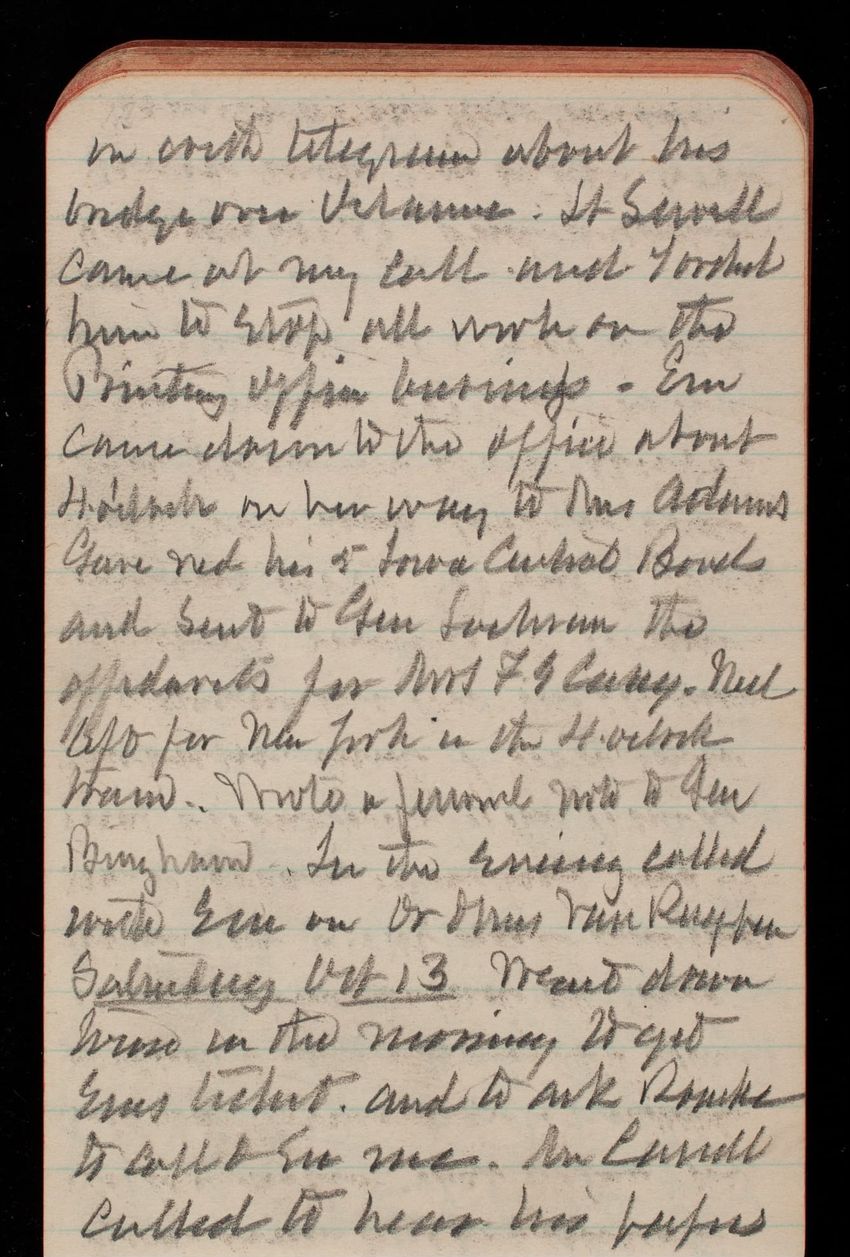 in with telegram about his
bridge over Potomac. Lt Sewell
came at my call and I ordered
him to stop all work on the
Printing Office business - Em
came down to the office about
4 o'clock on her way to Mrs Adams
Gave Ned his 5 Iowa Central Bonds
and sent to Gen Cochran the
affidavits for Mrs F G Casey. Ned
left for New York in the 4 o'clock
train. Wrote a personal note to Gen
Bingham. In the evening called
with Em on Dr & Mrs Van Reypen
Saturday Oct 13 Went down
town in the morning to get
Ems ticket. and to ask Roarke
to call & see me. Mr
called to hear his papers